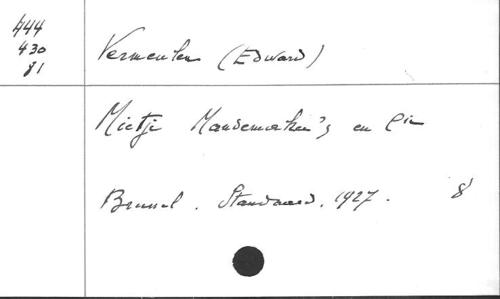 444
430
81
Vermeulen (Edward)
Mietje Mandemakers en Cie
Brussel. Standaard. 1927. 8°